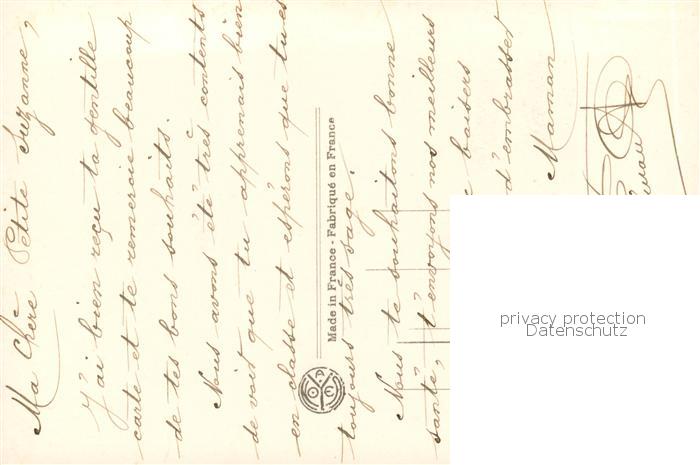 Ma Chère Petite Suzanne,
J'ai bien reçu ta gentille
carte et te remercie beaucoup
de tes bons souhaits.
Nous avons été très contents
de voir que tu apprenais bien
en classe et espérons que tu es
toujours très sage.
Made in France - Fabriqué en France
Nous te souhaitons bonne
santé, t'envoyons nos meilleurs
baisers
d'embrasser
Maman
privacy protection
Datenschutz